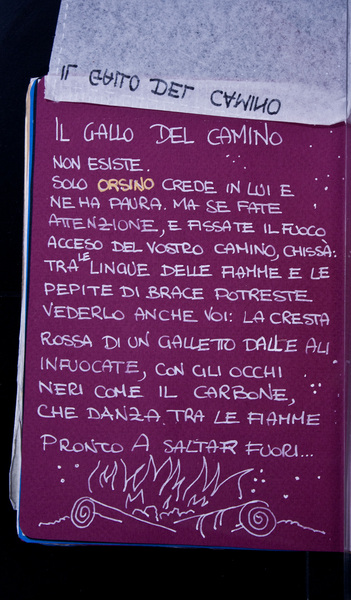 IL GALLO DEL CAMINO
IL GALLO DEL CAMINO
NON ESISTE.
SOLO ORSINO CREDE IN LUI E
NE HA PAURA. MA SE FATE
ATTENZIONE, E FISSATE IL FUOCO
ACCESO DEL VOSTRO CAMINO, CHISSÀ:
TRA LE LINGUE DELLE FIAMME E LE
PEPITE DI BRACE POTRESTE
VEDERLO ANCHE VOI: LA CRESTA
ROSSA DI UN GALLETTO DALLE ALI
INFUOCATE, CON GLI OCCHI
NERI COME IL CARBONE,
CHE DANZA TRA LE FIAMME
PRONTO A SALTAR FUORI...